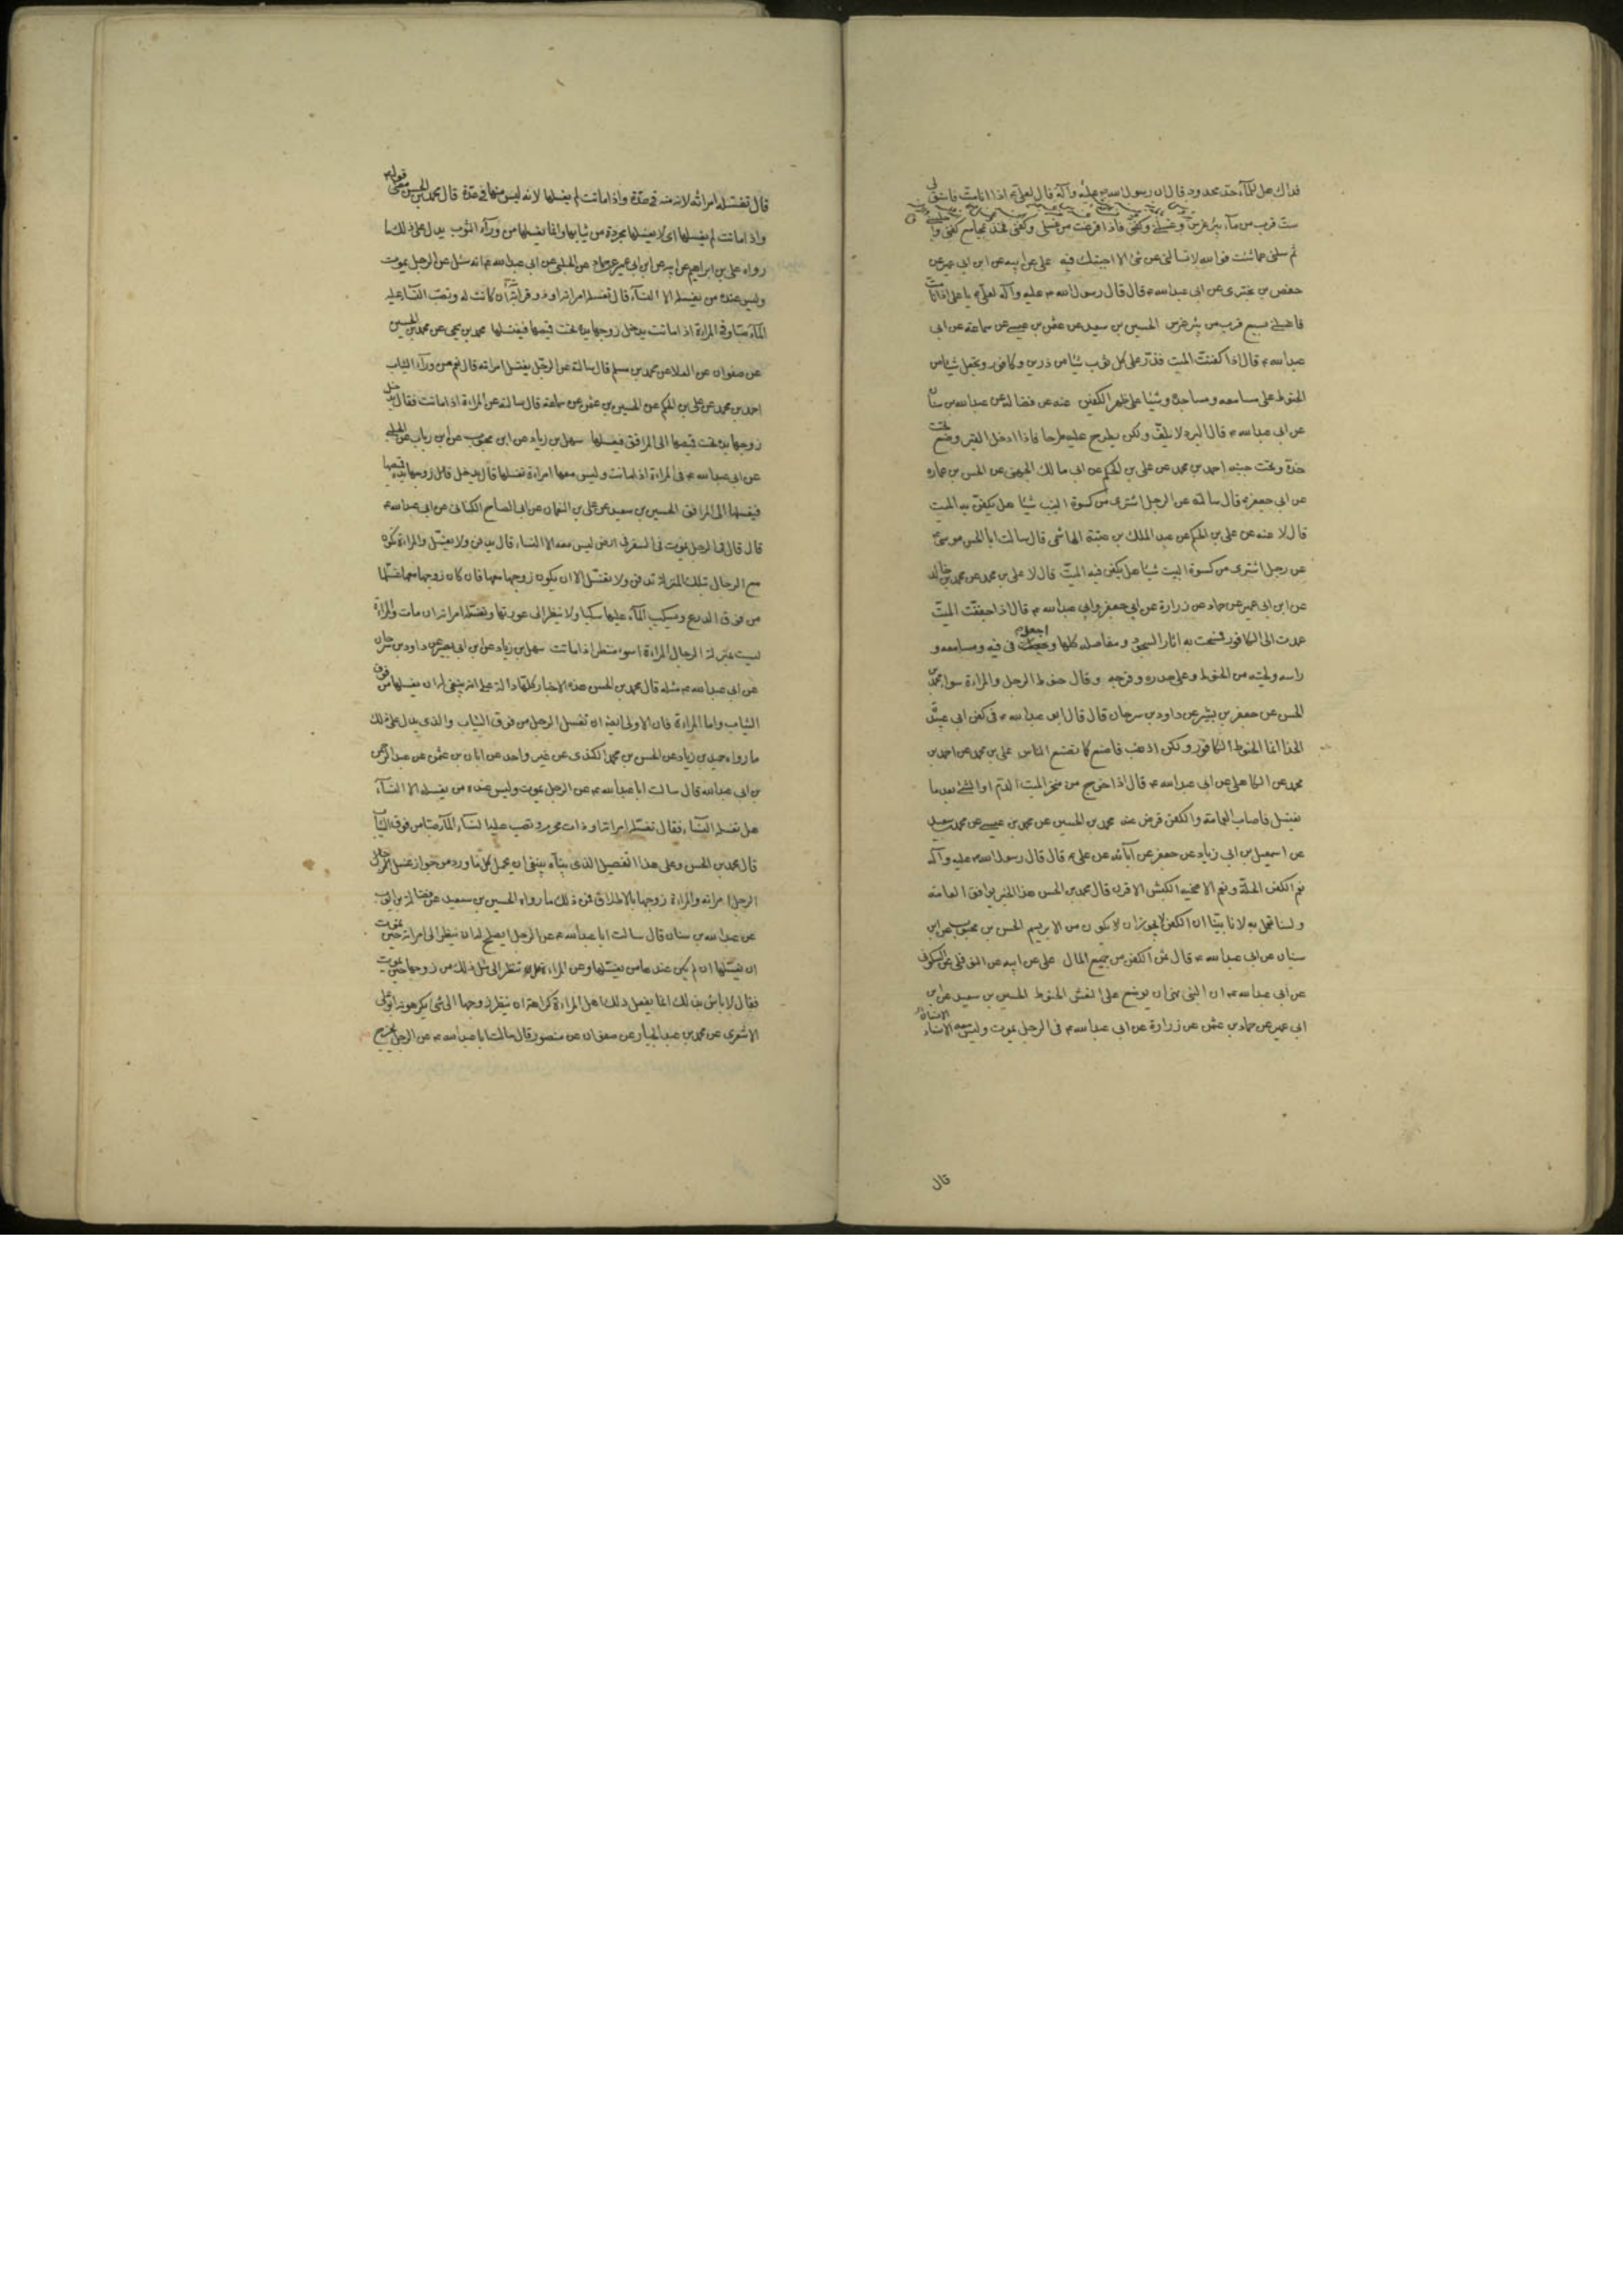 فداك هل للماء حد محدود قال ان رسول الله صلى الله عليه وآله قال لعلي ع اذا انا مت فاستق لى
ست قرب من ماء بئر غرس وغسلنى وكفنى فاذا فرغت من غسلى وكفنى فخذ بمجامع كفنى واجلسنى
ثم سلنى عما شئت فوالله لا تسالنى عن شئ الا اجبتك فيه على عن ابيه عن ابن ابى عمير عن
حفص بن بخترى عن ابى عبدالله ع قال قال رسول الله ص عليه وآله لعلى ع يا على اذا انا مت
فاغسلنى بسبع قرب من بئر غرس الحسين بن سعيد عن عثمن بن عيسى عن سماعة عن ابى
عبدالله ع قال اذا كفنت الميت فذر على كل ثوب شيئا من ذريرة وكافور وتجعل شيئا من
الحنوط على مسامعه ومساجده وشيئا على ظهر الكفين عنه عن فضالة عن عبدالله بن سنان
عن ابى عبدالله ع قال البرد لا يلف ولكن يطرح عليه طرحا فاذا ادخل القبر وضع تحت
خده وتحت جنبه احمد بن محمد عن على بن الحكم عن ابى مالك الجهنى عن الحسن بن عمارة
عن ابى جعفر ع قال سالته عن الرجل اشترى من كسوة البيت شيئا هل يكفن به الميت
قال لا عنه عن على بن الحكم عن عبد الملك بن عتبة الهاشمى قال سالت ابا الحسن موسى ع
عن رجل اشترى من كسوة البيت شيئا هل يكفن فيه الميت قال لا على بن محمد عن محمد بن خالد
عن ابن ابى عمير عن حماد عن زرارة عن ابى جعفر وابى عبدالله ع قال اذا جففت الميت
عمدت الى الكافور فمسحت به آثار السجود ومفاصله كلها واجعل فى فيه ومسامعه و
راسه ولحيته من الحنوط وعلى صدره وفرجه وقال حنوط الرجل والمراءة سواء محمد بن
الحسن عن جعفر بن بشير عن داود بن سرحان قال قال ابو عبدالله ع فى كفن ابى عبيدة
الحذا انما الحنوط الكافور ولكن اذهب فاصنع كما تصنع الناس على بن محمد عن احمد بن
محمد عن الكاهلى عن ابى عبدالله ع قال اذا خرج من منخر الميت الدم او الشئ بعد ما
يغسل فاصاب العمامة والكفن قرض عنه محمد بن الحسين عن محمد بن عيسى عن محمد بن سعيد
عن اسمعيل بن ابى زياد عن جعفر عن آبائه عن على ع قال قال رسول الله ص عليه وآله
نعم الكفن الحلة ونعم الاضحية الكبش الاقرن قال محمد بن الحسن هذا الخبر يوافق العامة
ولسنا نعمل به لانا بينا ان الكفن لا يجوز ان يكون من الابريسم الحسن بن محبوب عن ابن
سنان عن ابى عبدالله ع قال ثمن الكفن من جميع المال على عن ابيه عن النوفلى عن السكونى
عن ابى عبدالله ع ان النبى نهى ان يوضع على النعش الحنوط الحسين بن سعيد عن ابن
ابى عمير عن حماد بن عثمن عن زرارة عن ابى عبدالله ع فى الرجل يموت وليس معه الا النساء
قال
قال تغسله امراته لانها منه فى عدة واذا ماتت لم يغسلها لانه ليس منها فى عدة قال محمد بن الحسن معنى قوله ع
واذا ماتت لم يغسلها اى لا يغسلها مجردة من ثيابها وانما يغسلها من وراء الثوب يدل على ذلك ما
رواه على بن ابراهيم عن ابيه عن ابن ابى عمير عن حماد عن الحلبى عن ابى عبدالله ع انه سئل عن الرجل يموت
وليس عنده من يغسله الا النساء قال تغسله امراته او ذو قرابته ان كانت له وتصب النساء عليه
الماء صبا وفى المراءة اذا ماتت يدخل زوجها يده تحت قميصها فيغسلها محمد بن يحيى عن محمد بن الحسين
عن صفوان عن العلا عن محمد بن مسلم قال سالته عن الرجل يغسل امراته قال نعم من وراء الثياب
احمد بن محمد عن على بن الحكم عن الحسين بن عثمن عن سماعة قال سالته عن المراءة اذا ماتت فقال يدخل
زوجها يده تحت قميصها الى المرافق فيغسلها سهل بن زياد عن ابن محبوب عن ابن رياب عن الحلبى
عن ابى عبدالله ع فى المراءة اذا ماتت وليس معها امراءة تغسلها قال يدخل زوجها يده تحت قميصها
فيغسلها الى المرافق الحسين بن سعيد عن على بن النعمان عن ابى الصباح الكنانى عن ابى عبدالله ع
قال قال فى الرجل يموت فى السفر فى ارض ليس معه الا النساء قال يدفن ولا يغسل والمراءة تكون
مع الرجال بتلك المنزلة تدفن ولا تغسل الا ان يكون زوجها معها فان كان زوجها معها غسلها
من فوق الدرع ويسكب الماء عليها سكبا ولا ينظر الى عورتها وتغسله امراته ان مات والمراءة
ليست بمنزلة الرجال المراءة اسوء منظرا اذا ماتت سهل بن زياد عن ابن ابى نصر عن داود بن سرحان
عن ابى عبدالله ع مثله قال محمد بن الحسن هذه الاخبار كلها دالة على انه ينبغى له ان يغسلها من فوق
الثياب واما المراءة فان الاولى ايضا ان تغسل الرجل من فوق الثياب والذى يدل على ذلك
ما رواه حميد بن زياد عن الحسن بن محمد الكندى عن غير واحد عن ابان بن عثمن عن عبد الرحمن
بن ابى عبدالله قال سالت ابا عبدالله ع عن الرجل يموت وليس عنده من يغسله الا النساء
هل تغسله النساء فقال تغسله امراته او ذات محرمه وتصب عليه النساء الماء صبا من فوق الثياب
قال محمد بن الحسن وعلى هذا التفصيل الذى بيناه ينبغى ان يحمل كل ما ورد من جواز غسل الرجل
الرجل امراته والمراءة زوجها بالاطلاق فمن ذلك ما رواه الحسين بن سعيد عن فضالة بن ايوب
عن عبدالله بن سنان قال سالت ابا عبدالله ع عن الرجل ايصلح له ان ينظر الى امراته حين تموت
ان يغسلها ان لم يكن عندها من يغسلها وعن المراءة هل لها تنظر الى مثل ذلك من زوجها حين يموت
فقال لا باس بذلك انما يفعل ذلك اهل المراءة كراهة ان ينظر زوجها الى شئ يكرهونه ابو على
الاشعرى عن محمد بن عبد الجبار عن صفوان عن منصور قال سالت ابا عبدالله ع عن الرجل يخرج